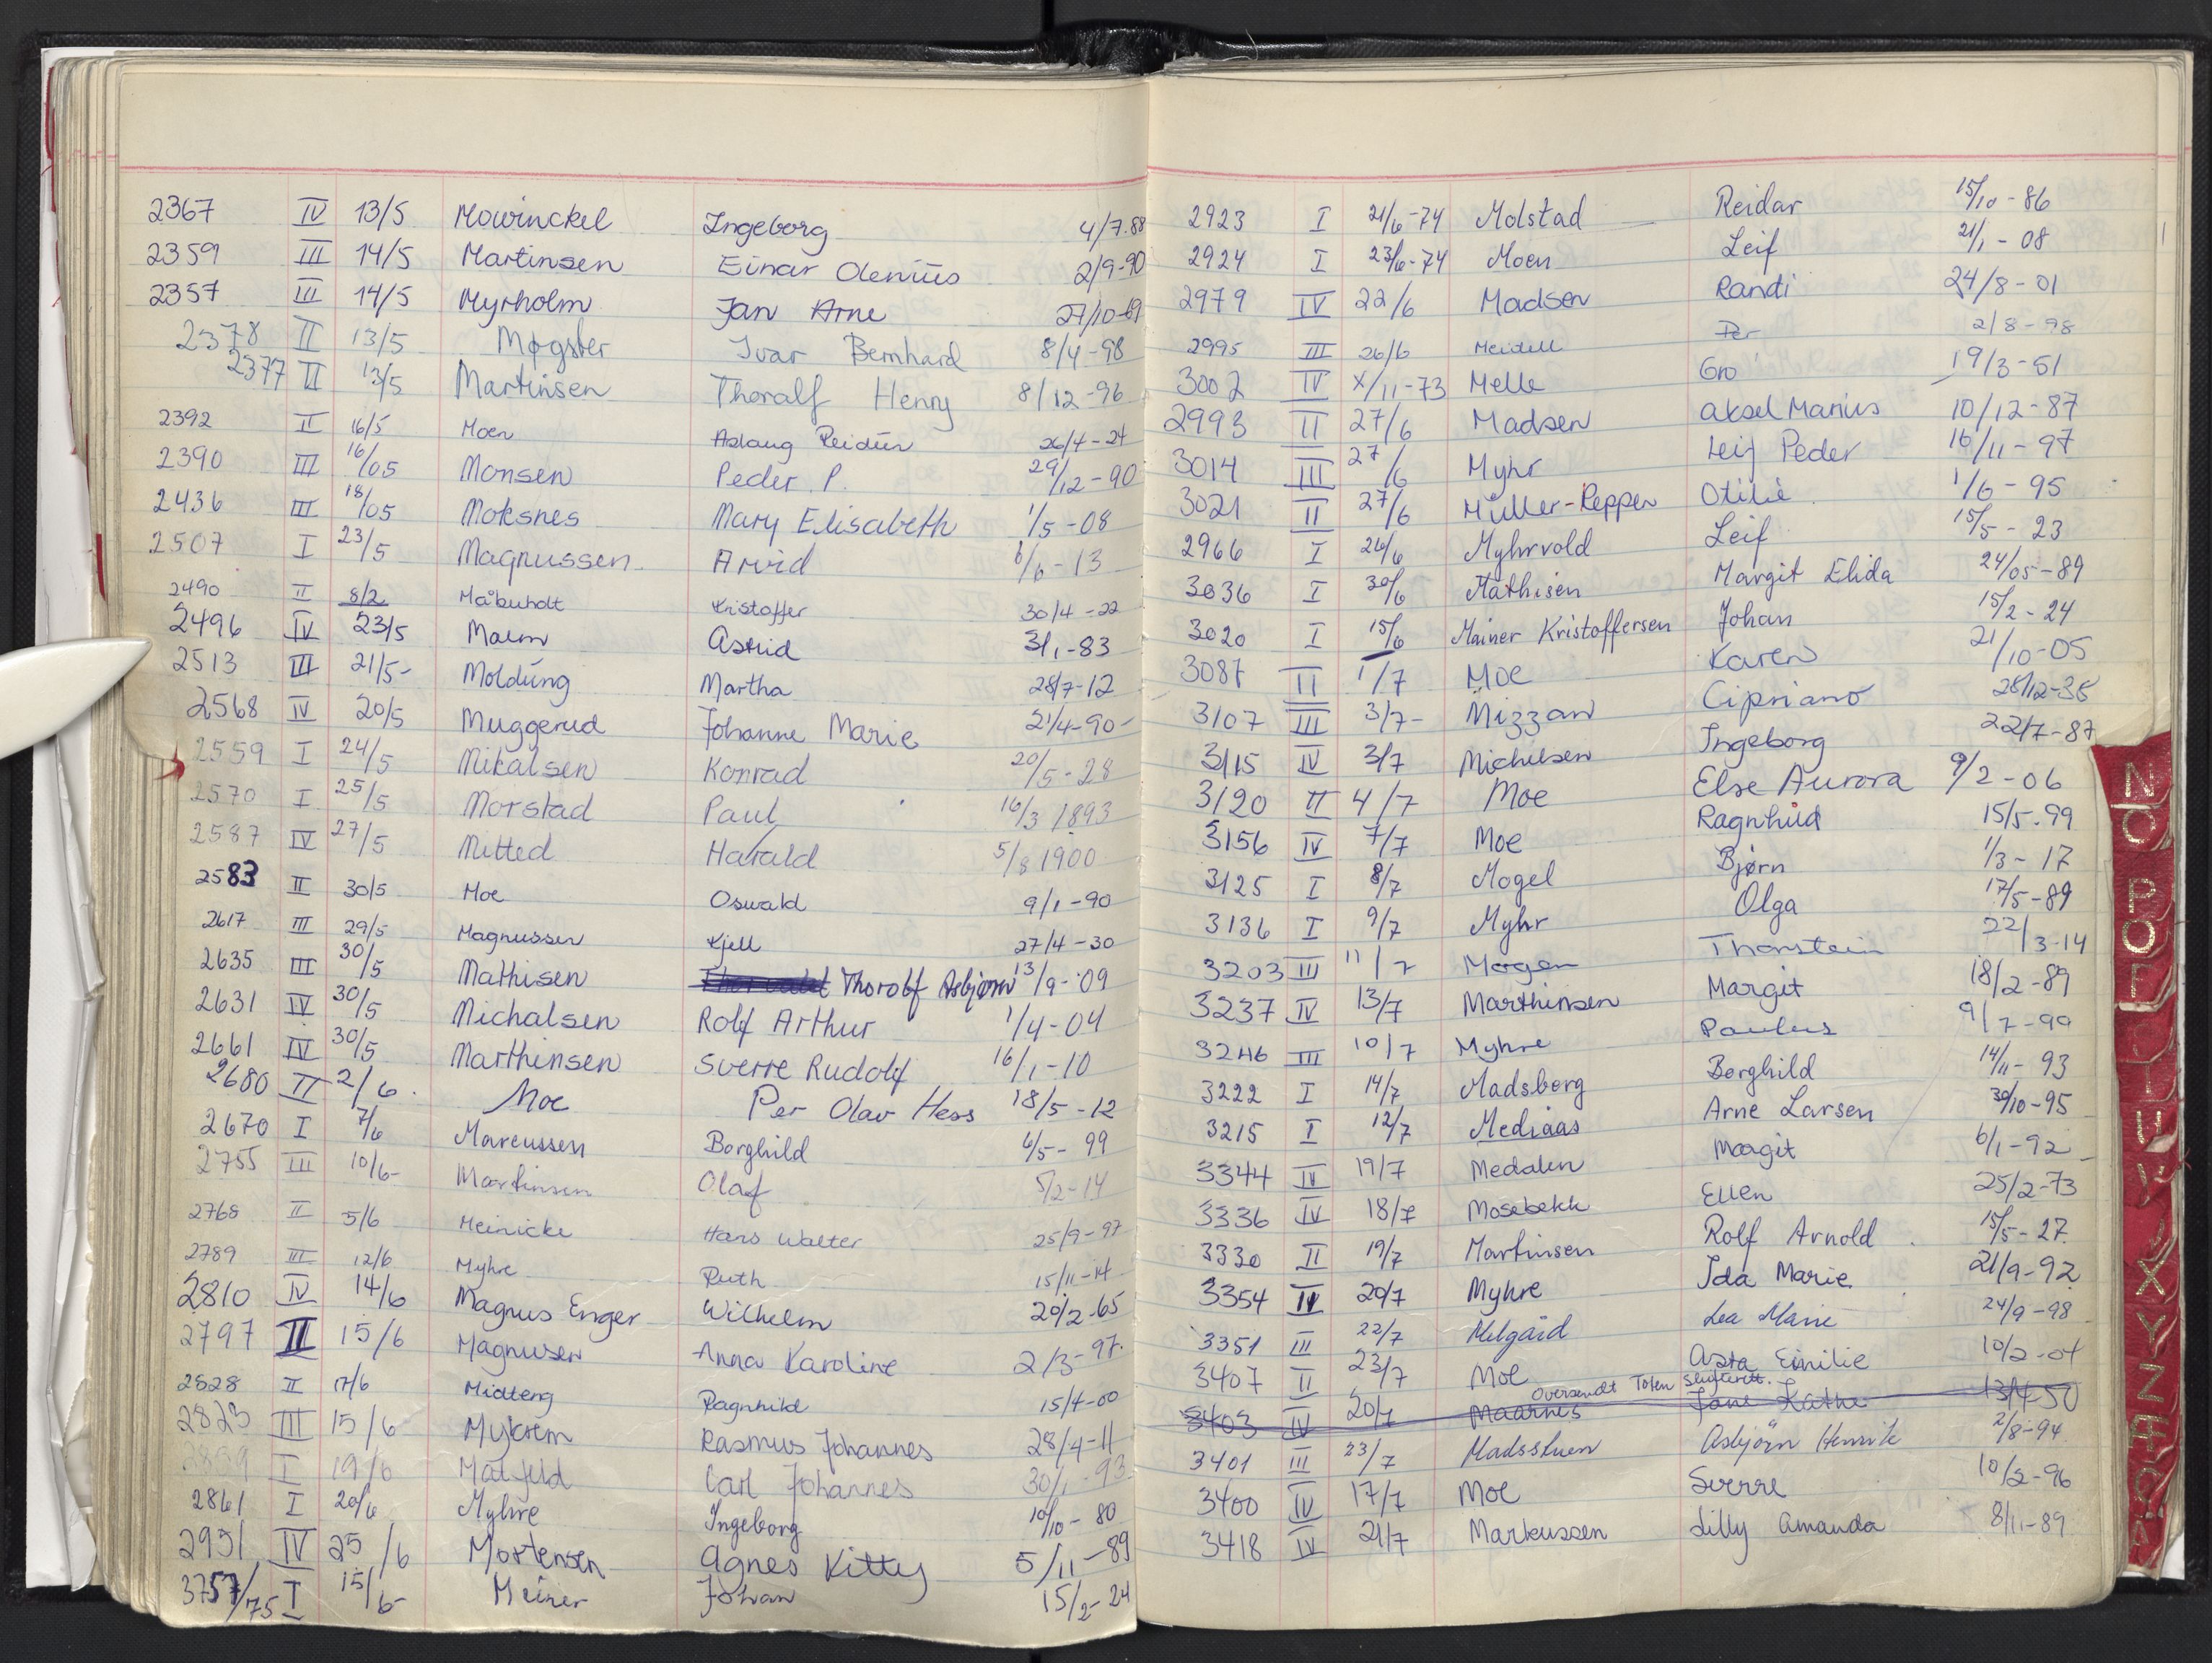 2367 IV 13/5 Mowinckel Ingeborg 4/7.88
2359 III 14/5 Martinsen Einar Olenius 2/9-90
2357 III 14/5 Myrholm Jan Arne 27/10-69
2378 II 13/5 Møgster Ivar Bernhard 8/4-98
2377 II 13/5 Martinsen Thoralf Henry 8/12-96
2392 II 16/5 Moen Aslaug Reidun 26/4-24
2390 III 16/05 Monsen Peder P. 29/12-90
2436 III 18/05 Moksnes Mary Elisabeth 1/5-08
2507 I 23/5 Magnussen Arvid 6/6-13
2490 II 8/2 Måbuholt Kristoffer 30/4-22
2496 IV 23/5 Malm Astrid 3/1-83
2513 III 21/5- Moldung Martha 28/7-12
2568 IV 20/5 Muggerud Johanne Marie 21/4-90-
2559 I 24/5 Mikalsen Konrad 20/5-28
2570 I 25/5 Morstad Paul 16/3 1893
2587 IV 27/5 Mitted Harald 5/8 1900
2583 II 30/5 Moe Oswald 9/1-90
2617 III 29/5 Magnussen Kjell 27/4-30
2635 III 30/5 Mathisen Thorolf Asbjørn 13/9-09
2631 IV 30/5 Michalsen Rolf Arthur 1/4-04
2661 IV 30/5 Marthinsen Sverre Rudolf 16/1-10
2680 II 2/6. Moe Per Olav Hess 18/5-12
2670 I 7/6 Marcussen Borghild 6/5-99
2755 III 10/6- Martinsen Olaf 5/2-14
2768 II 5/6 Meinicke Hans Walter 25/9-97
2789 III 12/6 Myhre Ruth 15/11-14
2810 IV 14/6 Magnus Enger Wilhelm 20/2-65
2797 II 15/6 Magnusen Anna Karoline 2/3-97.
2828 II 17/6 Midteng Ragnhild 15/4-00
2823 III 15/6 Myklem Rasmus Johannes 28/4-11
I 19/6 Matfeld Carl Johannes 30/1-93
2861 I 20/6 Myhre Ingeborg 10/10-80
2951 IV 25/6 Mortensen Agnes Kitty 5/11-89
3757/75 I 15/6- Meiner Johan 15/2-24
2923 I 21/6-74 Molstad Reidar 15/10-86
2924 I 23/6-74 Moen Leif 21/1-08
2979 IV 22/6 Madsen Randi 24/8-01
2995 III 26/6 Meidell Per 2/8-98
3002 IV X/11-73 Melle Gro 19/3-51
2993 II 27/6 Madsen Aksel Marius 10/12-87
3014 III 27/6 Myhr Leif Peder 16/11-97
3021 II 27/6 Müller-Reppen Otilie 1/6-95
2966 I 26/6 Myhrvold Leif 15/5-23
3036 I 30/6 Mathisen Margit Elida 24/05-89
3020 I 15/6 Meiner Kristoffersen Johan 15/2-24
3087 II 1/7 Moe Karen 21/10-05
3107 III 3/7- Mizzan Cipriano 28/12-35
3115 IV 3/7 Michelsen Ingeborg 22/7-87
3120 II 4/7 Moe Else Aurora 9/2-06
3156 IV 7/7 Moe Ragnhild 15/5.99
3125 I 8/7 Mogel Bjørn 1/3-17
3136 I 9/7 Myhr Olga 17/5-89
3203 III 11/7 Mogen Thorstein 22/3-14
3237 IV 13/7 Marthinsen Margit 18/2-89
3246 III 10/7 Myhre Paulus 9/7-99
3222 I 14/7 Madsberg Borghild 14/11-93
3215 I 12/7 Mediaas Arne Larsen 30/10-95
3344 IV 19/7 Medalen Margit 6/1-92
3336 IV 18/7 Mosebekk Ellen 25/2-73
3330 II 19/7 Martinsen Rolf Arnold 15/5-27
3354 IV 20/7 Myhre Ida Marie 21/9-92
3351 III 22/7 Melgård Lea Marie 24/9-98
3407 II 23/7 Moe Asta Emilie 10/2-01
Oversendt Toten skifterett.
3403 IV 20/7 Maarnes Jane Kathe 13/4-50
3401 III 23/7 Madsstuen Asbjörn Henrik 2/8-94
3400 IV 17/7 Moe Sverre 10/2-96
3418 IV 21/7 Markussen Lilly Amanda 8/11-89
N
O
P
X
Y
Z
Æ
Ø